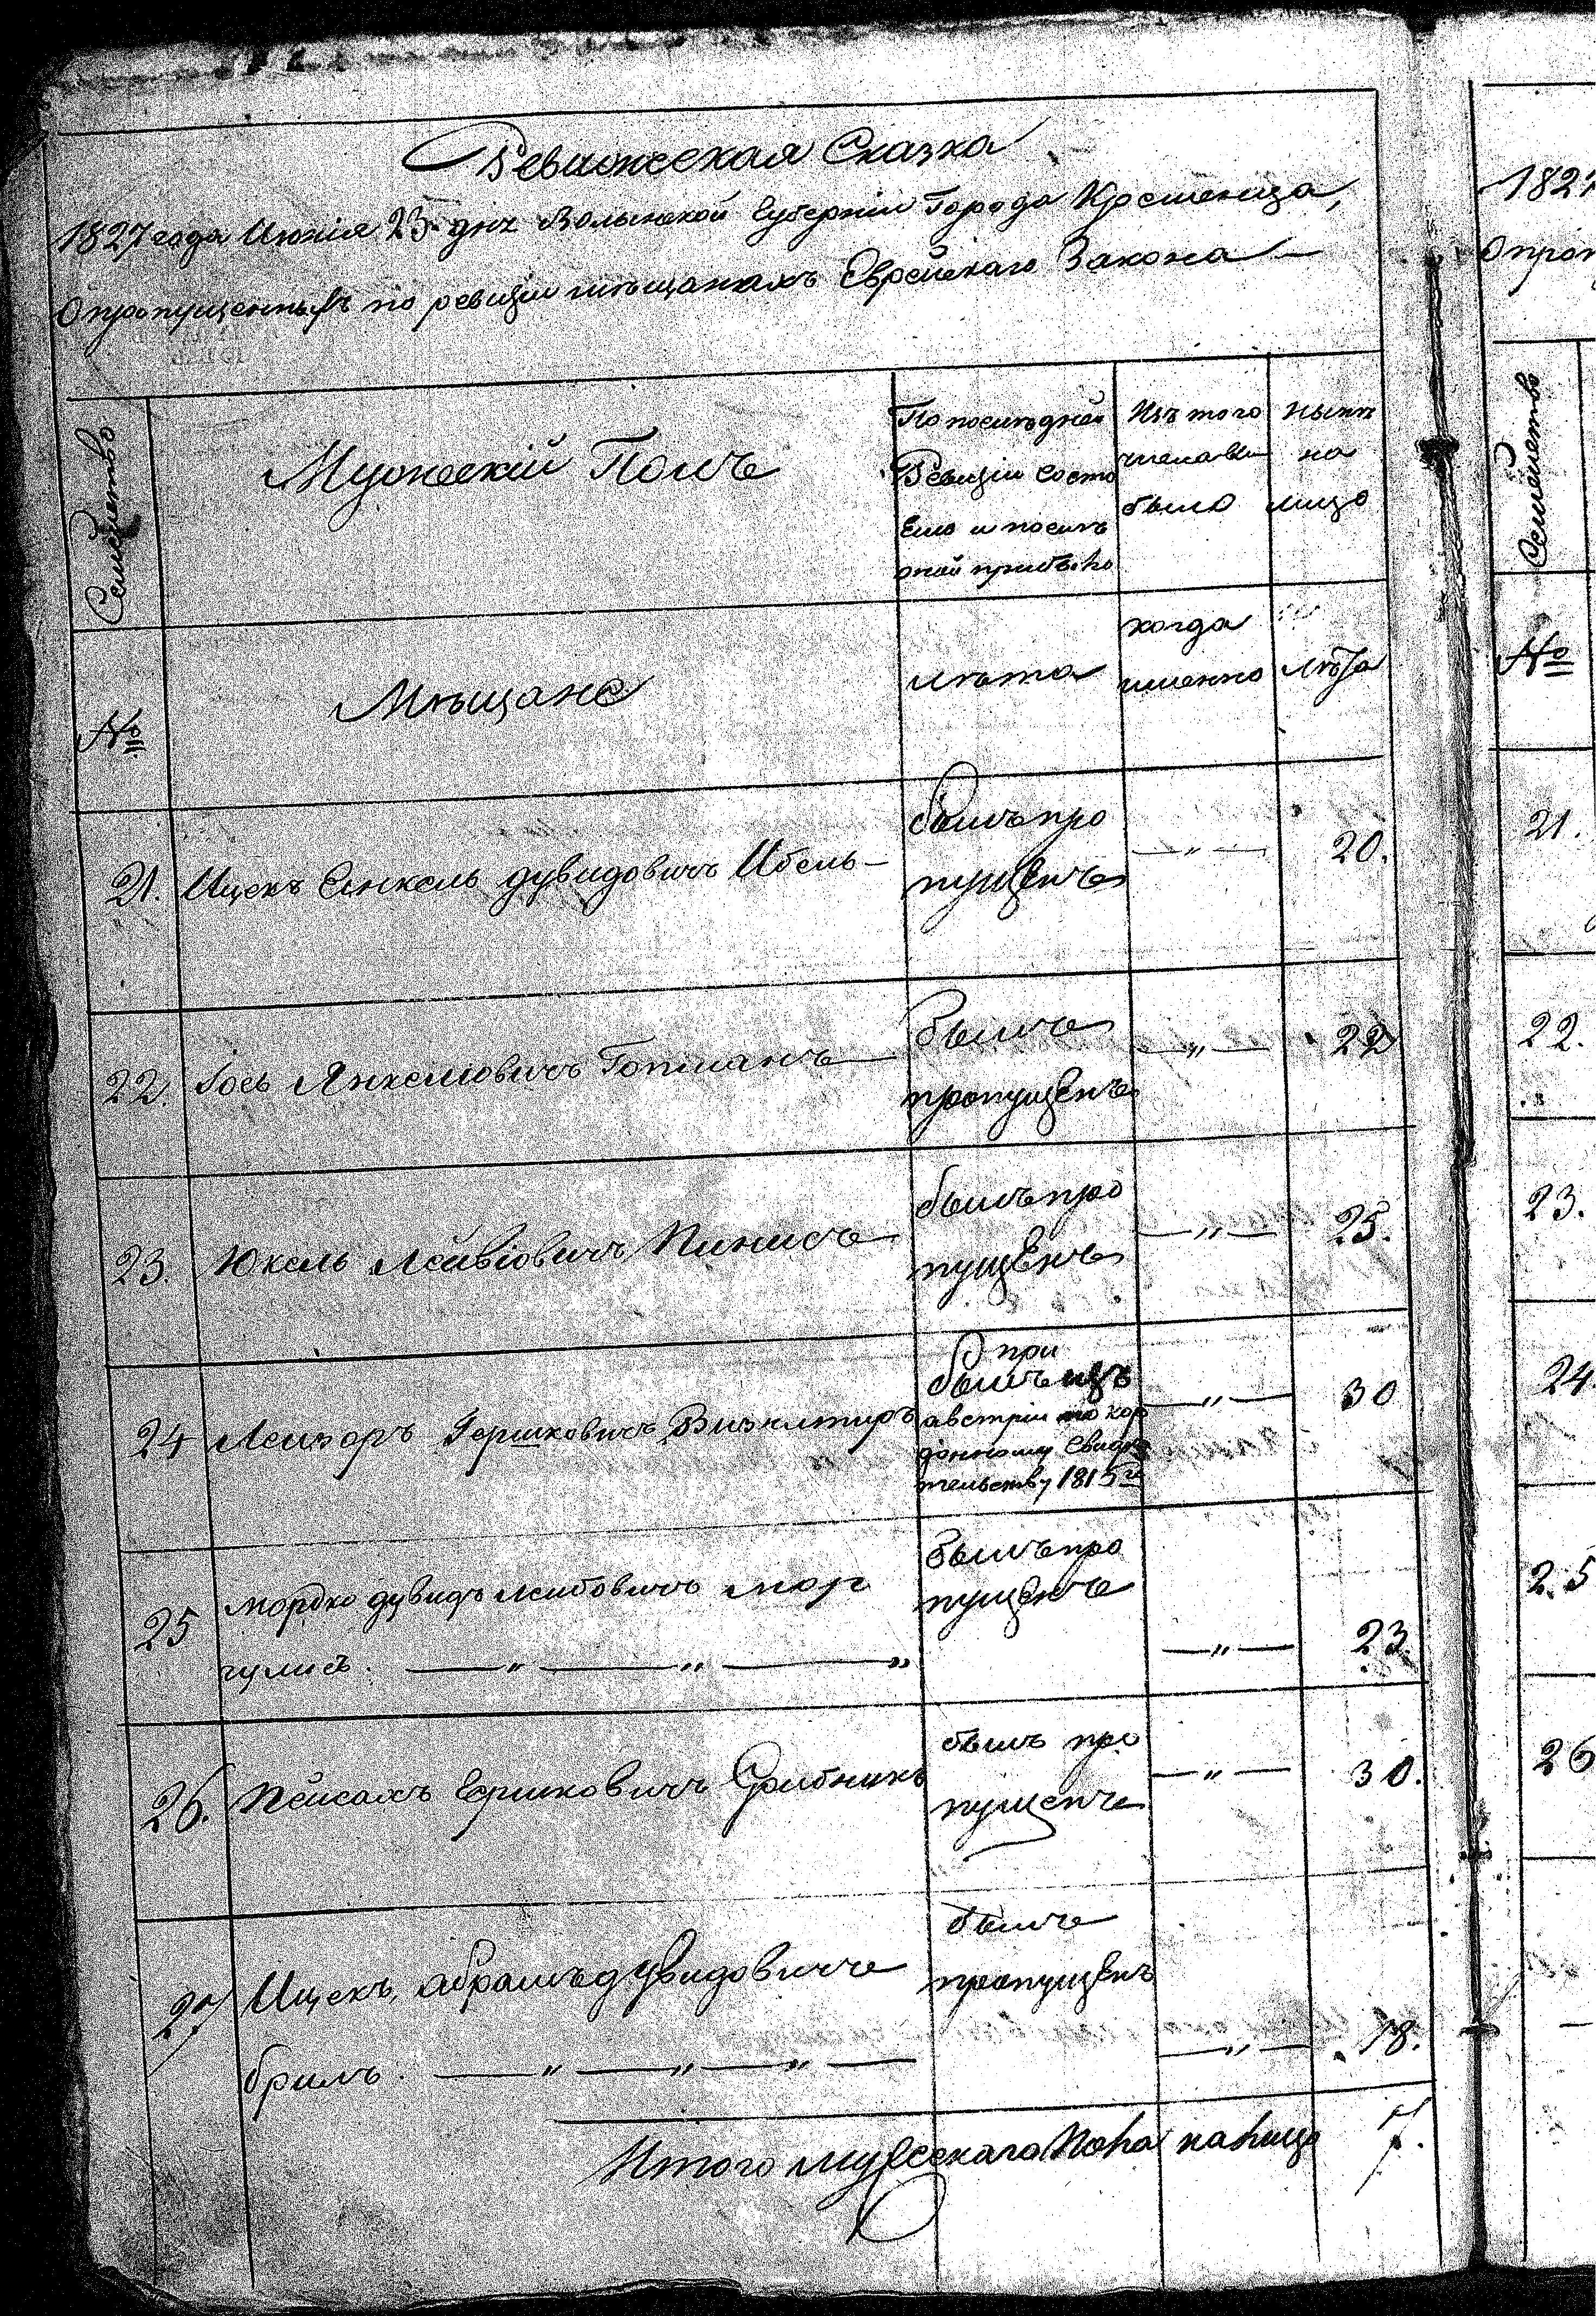 Ревижская Сказка
1827 года Июнія 25 дня Волынской Губерніи Города Кременца,
О пропущенныхъ по ревизіи мѣщанахъ Еврейскаго Закона
Семейство
Мужескій Полъ
По послѣдней
Ревизіи состо
яло и послѣ
оной прибыло
Изъ того
числа вы
было
Нынѣ
на
лицо
№
Мѣщане
лѣта
когда
именно
лѣта
21. Ицекъ Янкель дувидовичъ Ибель —
былъ про
пущенъ
— „ — 20.
22. Іось Янкелювичъ Готманъ —
былъ
пропущенъ
— „ — 22
23. Юкель Лейвіовичъ Пинисъ
былъ про
пущенъ
— „ — 25.
24 Лейзоръ Гершковичъ
при
былъ изъ
австріи по кор
донному свидѣ
тельству 1815го
— „ — 30
25 Мордко дувидъ лейбовичъ мар
гулисъ. — „ — „ — „
былъ про
пущенъ
— „ — 23
26. Пейсахъ Ершковичъ Грибникъ
былъ про
пущенъ
— „ — 30.
27 Ицекъ, абрамъ дувидовичъ
брилъ. — „ — „ — „ —
былъ
пропущенъ
— „ — 18.
Итого мужескаго пола на лицо 7.
1827
О проп
Семейство
№
21.
22.
23.
24
25
26